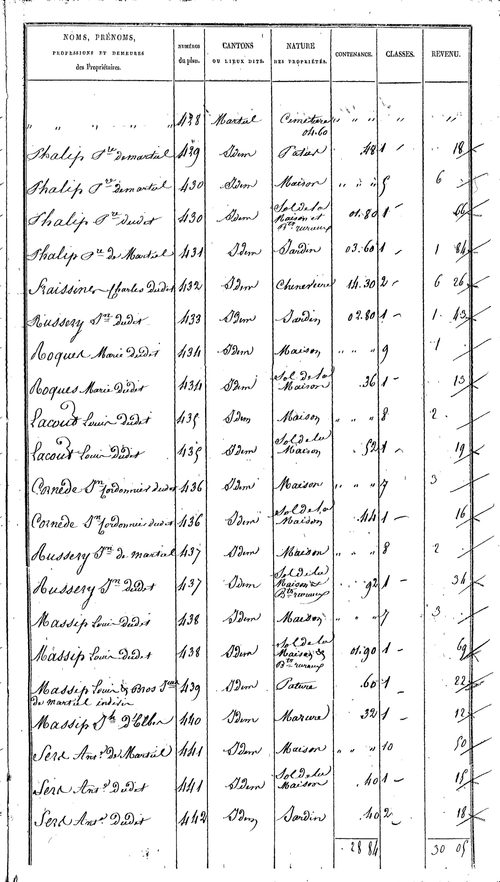 NOMS, PRÉNOMS, PROFESSIONS ET DEMEURES des Propriétaires. NUMÉROS du plan. CANTONS OU LIEUX DITS. NATURE DES PROPRIÉTÉS. CONTENANCE. CLASSES. REVENU.
" " " " " 428 Martiel Cimetière " " " " "
04.60
Phalip Pre de martiel 429 Idem Patus .48 1 18
Phalip Pre de martiel 430 Idem Maison " " " 5 6 "
Phalip Pre dudit 430 Idem Sol de la Maison et Bts ruraux 01.80 1 66
Phalip Pre de Martiel 431 Idem Jardin 03.60 1 1 84
Fraissines Charles dudit 432 Idem Cheneviere 14.30 2 6 26
Russery Jn dudit 433 Idem Jardin 02.80 1 1 43
Roques Marie dudit 434 Idem Maison " " " 9 1
Roques Marie dudit 434 Idem Sol de la Maison .36 1 13
Lacout Louis dudit 435 Idem Maison " " " 8 2
Lacout Louis dudit 435 Idem Sol de la Maison .52 1 19
Cornède Jn Cordonnier dudit 436 Idem Maison " " " 7 3
Cornède Jn Cordonnier dudit 436 Idem Sol de la Maison .44 1 16
Russery Jn de martiel 437 Idem Maison " " " 8 2
Russery Jn dudit 437 Idem Sol de la Maison & Bts ruraux .92 1 34
Massip Louis dudit 438 Idem Maison " " " 7 3
Massip Louis dudit 438 Idem Sol de la Maison & Bts ruraux 01.90 1 69
Massip Louis & Bros 439 Idem Pature .60 1 22
de martiel indivis
Massip Jh d'Elbes 440 Idem Mazure .32 1 12
Serx Ante de Martiel 441 Idem Maison " " " 10 50
Serx Ante dudit 441 Idem Sol de la Maison .40 1 15
Serx Ante dudit 442 Idem Jardin .40 2 18
28 84 30 05